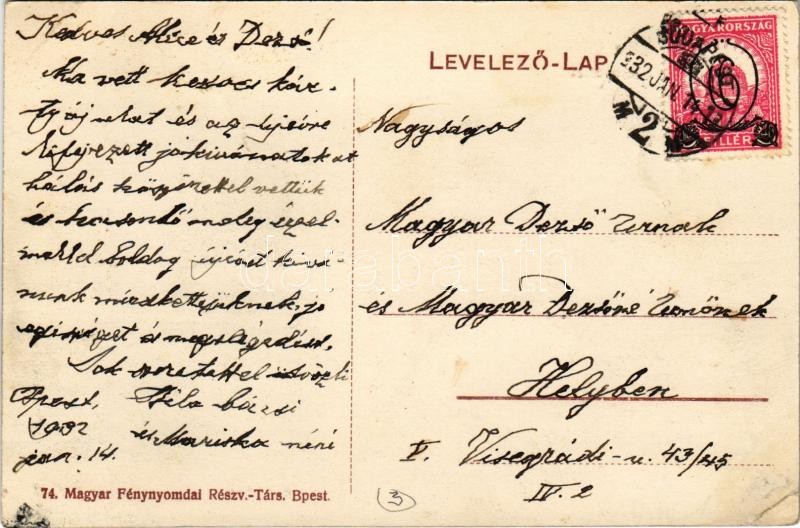 Kedves Alice és Dezső!
Ma vett kedves
és az újévre
kifejezett jókivánatokat
hálás köszönettel vettük
és hasonló meleg érzel-
mekkel boldog újévet kivá-
nunk mindkettőjüknek, jó
egészséget és megelégedést.
Sok szeretettel
Bpest, Béla bácsi
1932 és Mariska néni
jan. 14.
74. Magyar Fénynyomdai Részv.-Társ. Bpest.
LEVELEZŐ-LAP
MAGYARORSZÁG
FILLÉR
932 JAN. 14
2
Nagyságos
Magyar Dezső Urnak
és Magyar Dezsőné Urnőnek
Helyben
V. Visegrádi-u. 43/45
IV. 2
3
darabanth